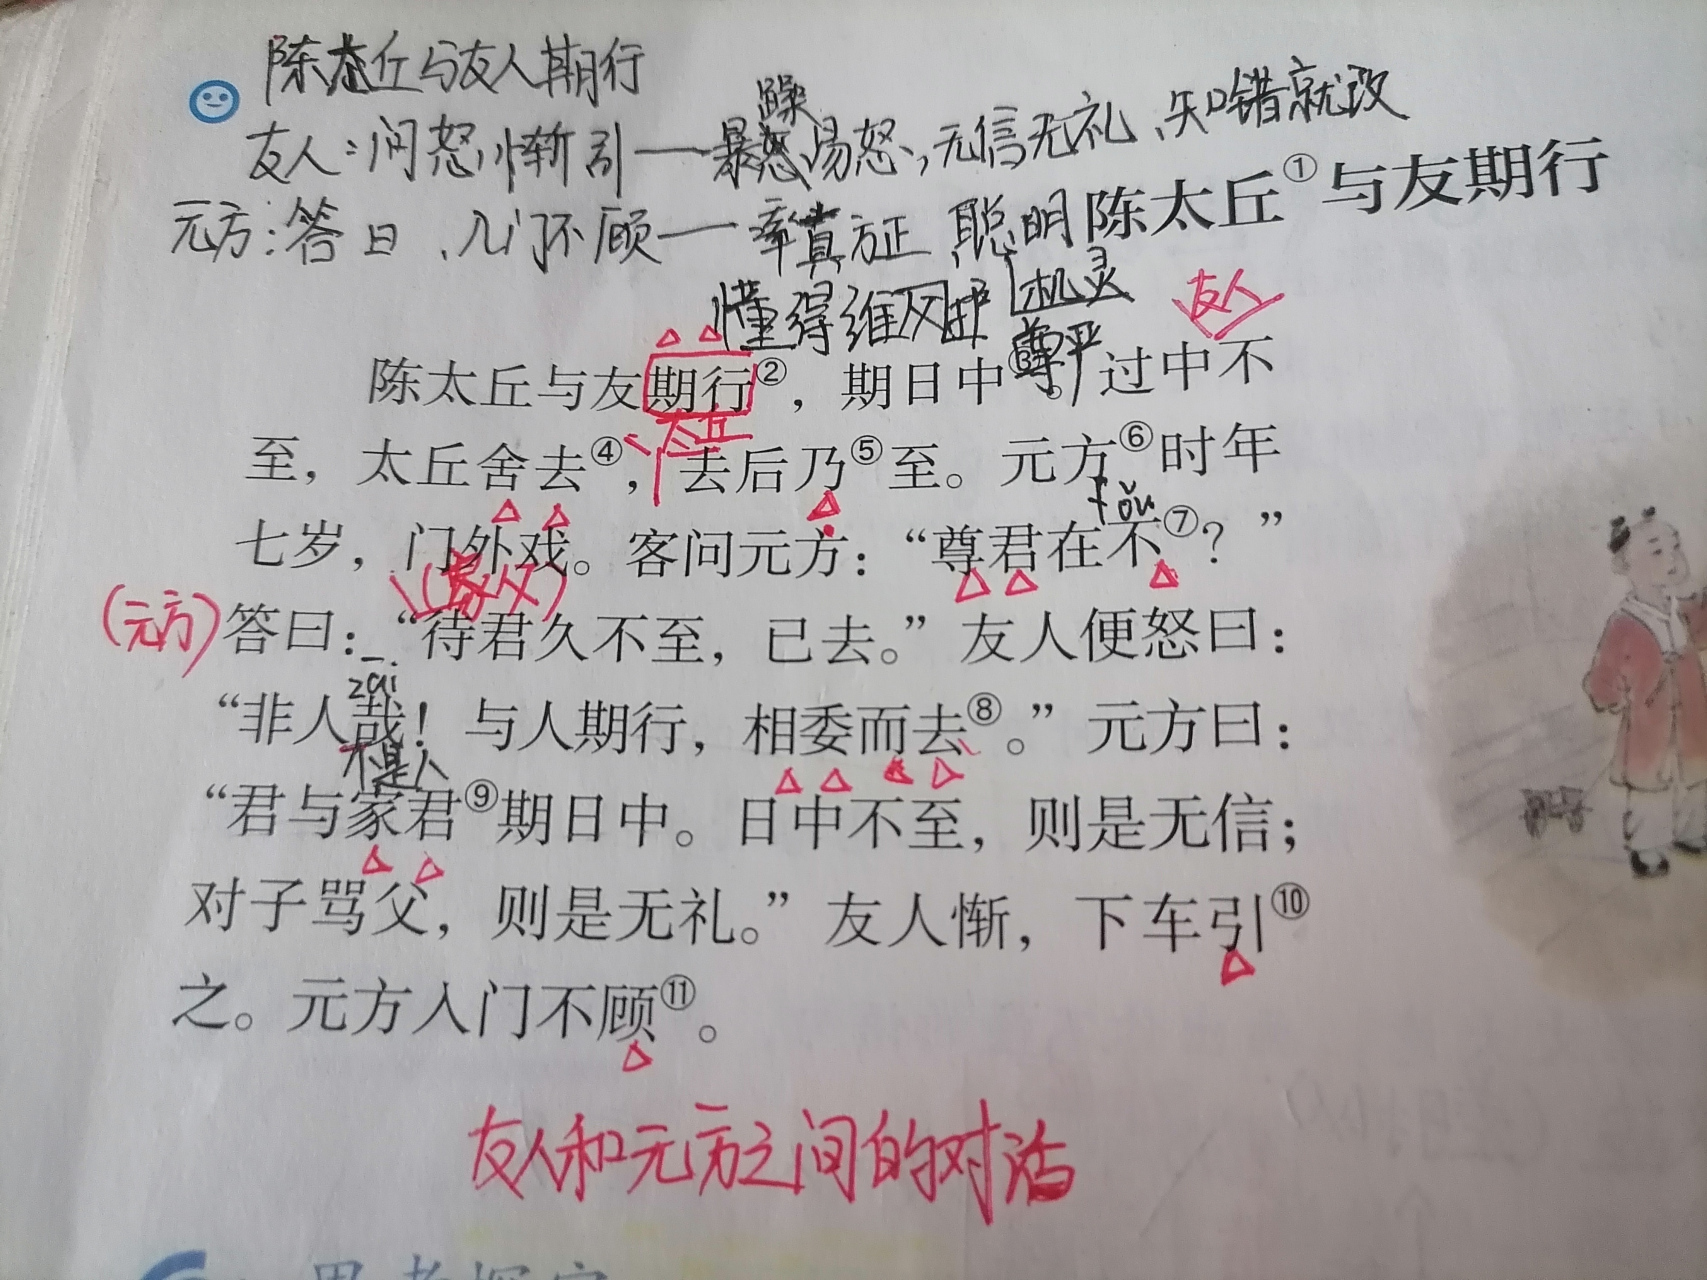 陈太丘与友人期行
友人：问 怒 惭 引——暴躁易怒，无信无礼、知错就改
元方：答曰、入门不顾——率真方正 聪明
机灵
懂得维护
尊严
陈太丘①与友期行
友人
陈太丘与友期行②，期日中③。过中不
至，太丘舍去④，去后乃⑤至。元方⑥时年
fǒu
七岁，门外戏。客问元方：“尊君在不⑦？”
（家父）
（元方）答曰：“待君久不至，已去。”友人便怒曰：
zāi
“非人哉！与人期行，相委而去⑧。”元方曰：
不是人
“君与家君⑨期日中。日中不至，则是无信；
对子骂父，则是无礼。”友人惭，下车引⑩
之。元方入门不顾⑪。
友人和元方之间的对话
思考探究